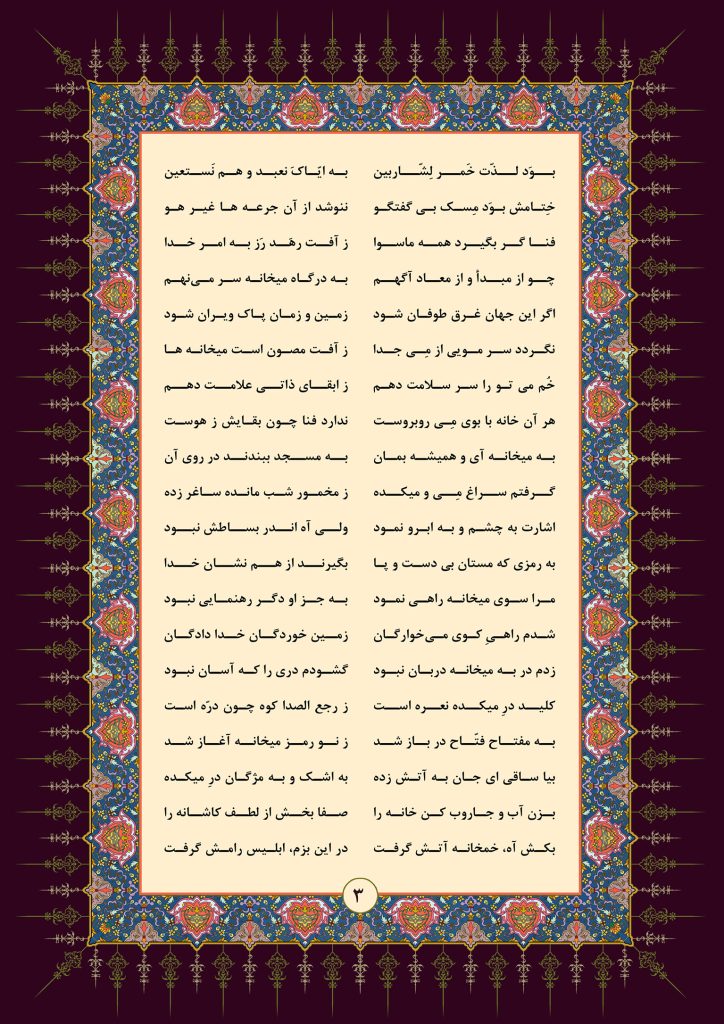 بـود لـذّت خَمـر لِشّـاربین    بـه ایّـاکَ نعبـد و هـم نَسـتعین
خِتـامش بـوَد مِسـک بـی گفتگـو    ننوشد از آن جرعـه هـا غیـر هـو
فنـا گـر بگیـرد همـه ماسـوا    ز آفـت رهَـد رَز بـه امـر خـدا
چـو از مبـدأ و از معـاد آگهـم    بـه درگـاه میخانـه سـر می‌نهـم
اگر این جهان غـرق طوفـان شود    زمـین و زمـان پـاک ویـران شـود
نگـردد سـر مـویی از مِـی جـدا    ز آفـت مصـون اسـت میخانـه هـا
خُم می تـو را سـر سـلامت دهـم    ز ابقـای ذاتـی علامـت دهـم
هر آن خانه با بوی مِـی روبروست    ندارد فنا چـون بقـایش ز هوسـت
بـه میخانـه آی و همیشـه بمـان    بـه مسـجد ببندنـد در روی آن
گـرفتم سـراغ مِـی و میکـده    ز مخمـور شـب مانـده سـاغر زده
اشارت به چشـم و بـه ابرو نمـود    ولـی آه انـدر بسـاطش نبـود
به رمزی که مستان بی دسـت و پـا    بگیرنـد از هـم نشـان خـدا
مـرا سـوی میخانـه راهـی نمـود    بـه جـز او دگـر رهنمـایی نبـود
شـدم راهـیِ کـوی مـی‌خوارگـان    زمـین خوردگـان خـدا دادگـان
زدم در بـه میخانـه دربـان نبـود    گشـودم دری را کـه آسـان نبـود
کلیـد درِ میکـده نعـره اسـت    ز رجع الصدا کوه چـون درّه اسـت
بـه مفتـاح فتّـاح در بـاز شـد    ز نـو رمـز میخانـه آغـاز شـد
بیا سـاقی ای جـان بـه آتـش زده    به اشـک و بـه مژگـان درِ میکـده
بـزن آب و جـاروب کـن خانـه را    صـفا بخـش از لطـف کاشـانه را
بکـش آه، خمخانـه آتـش گرفـت    در این بزم، ابلـیس رامـش گرفـت
۳